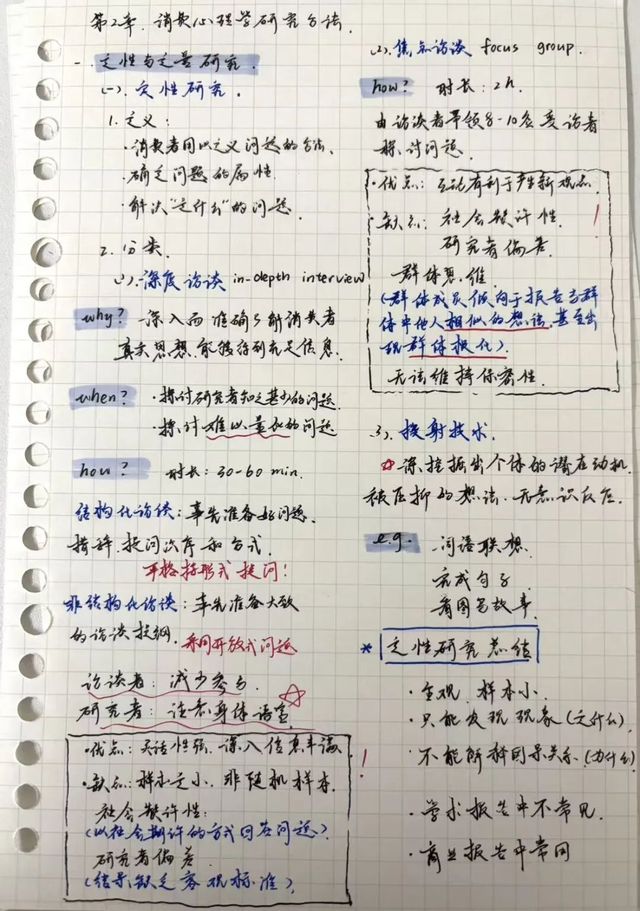 第2章. 消费心理学研究方法.
一、定性与定量研究.
(一). 定性研究.
1. 定义:
·消费者用以定义问题的方法.
·确定问题的属性
·解决"是什么"的问题.
2. 分类.
(1). 深度访谈 in-depth interview
why? 深入而准确了解消费者
真实思想, 能够得到充足信息.
when? ·探讨研究者知之甚少的问题.
·探讨难以量化的问题
how? 时长: 30-60 min.
结构化访谈: 事先准备好问题.
措辞. 提问次序和方式.
严格按形式提问!
非结构化访谈: 事先准备大致
的访谈提纲. 采用开放式问题
访谈者: 减少参与.
研究者: 注意身体语言
·优点: 灵活性强, 深入信息丰富
·缺点: 样本之小, 非随机样本.
社会赞许性:
(以社会期许的方式回答问题)
研究者偏差
(结果缺乏客观标准).
(2). 焦点访谈 focus group.
how? 时长: 2h.
由访谈者带领8-10名受访者
探讨问题.
·优点: 互动有利于产生新观点
·缺点: 社会赞许性.
研究者偏差.
群体思维
(群体成员倾向于报告与群
体中他人相似的想法, 甚至出
现群体极化).
无法维持保密性.
(3). 投射技术.
☆深挖掘出个体的潜在动机
被压抑的想法. 无意识反应.
e.g. 词语联想.
完成句子
看图写故事.
* 定性研究总结
·主观. 样本小.
·只能发现现象(是什么)
·不能解释因果关系(为什么)
·学术报告中不常见.
·商业报告中常用